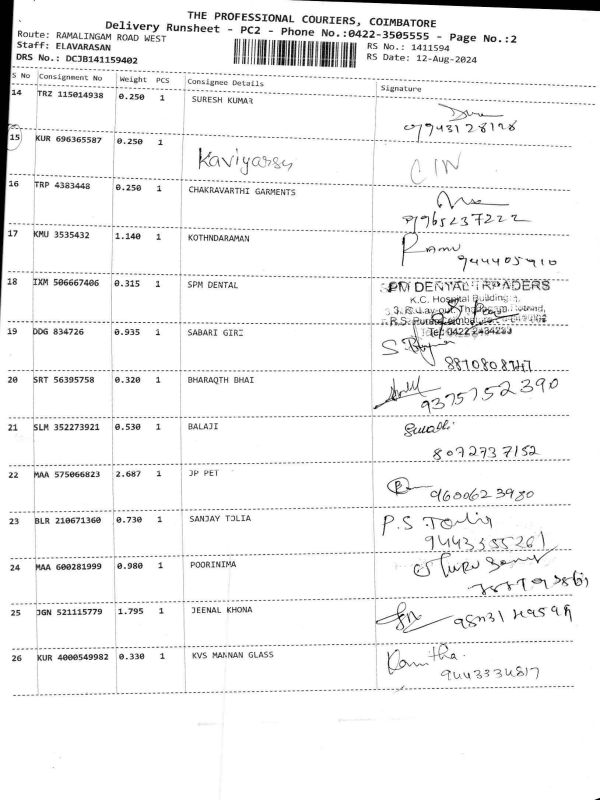 THE PROFESSIONAL COURIERS, COIMBATORE
Delivery Runsheet - PC2 - Phone No.:0422-3505555 - Page No.:2
Route: RAMALINGAM ROAD WEST
Staff: ELAVARASAN
DRS No.: DCJB141159402
RS No.: 1411594
RS Date: 12-Aug-2024
S No Consignment No Weight PCS Consignee Details Signature
14 TRZ 115014938 0.250 1 SURESH KUMAR
15 KUR 696365587 0.250 1
16 TRP 4383448 0.250 1 CHAKRAVARTHI GARMENTS
17 KMU 3535432 1.140 1 KOTHNDARAMAN
Ramu
944405910
18 IXM 506667406 0.315 1 SPM DENTAL
SPM DENTAL TRADERS
K.C. Hospital Building
Tel: 0422 2434233
19 DDG 834726 0.935 1 SABARI GIRI
8870808747
20 SRT 56395758 0.320 1 BHARAQTH BHAI
9375752390
21 SLM 352273921 0.530 1 BALAJI
8072737152
22 MAA 575066823 2.687 1 JP PET
9600623980
23 BLR 210671360 0.730 1 SANJAY TOLIA
P.S Tolia
9443335261
24 MAA 600281999 0.980 1 POORINIMA
25 JGN 521115779 1.795 1 JEENAL KHONA
26 KUR 4000549982 0.330 1 KVS MANNAN GLASS
9443334817